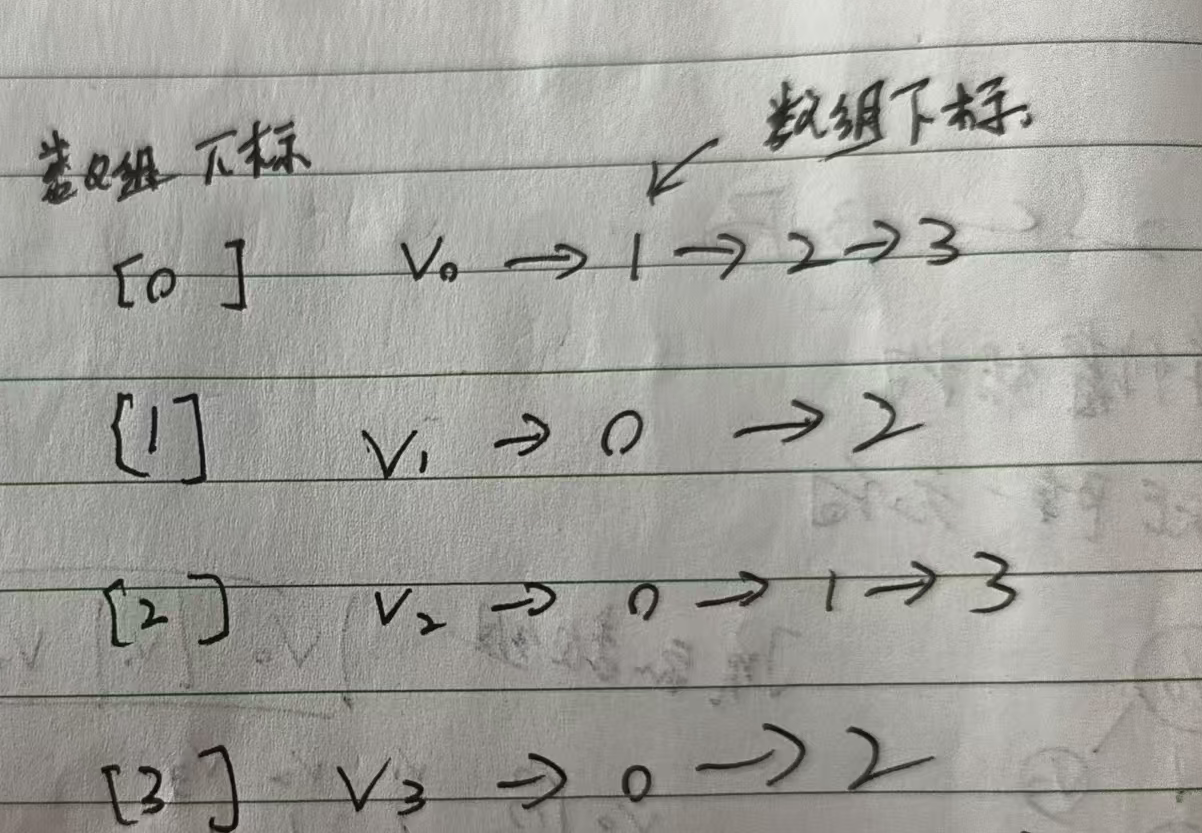 数组下标 数组下标
[0] V₀ → 1 → 2 → 3
[1] V₁ → 0 → 2
[2] V₂ → 0 → 1 → 3
[3] V₃ → 0 → 2